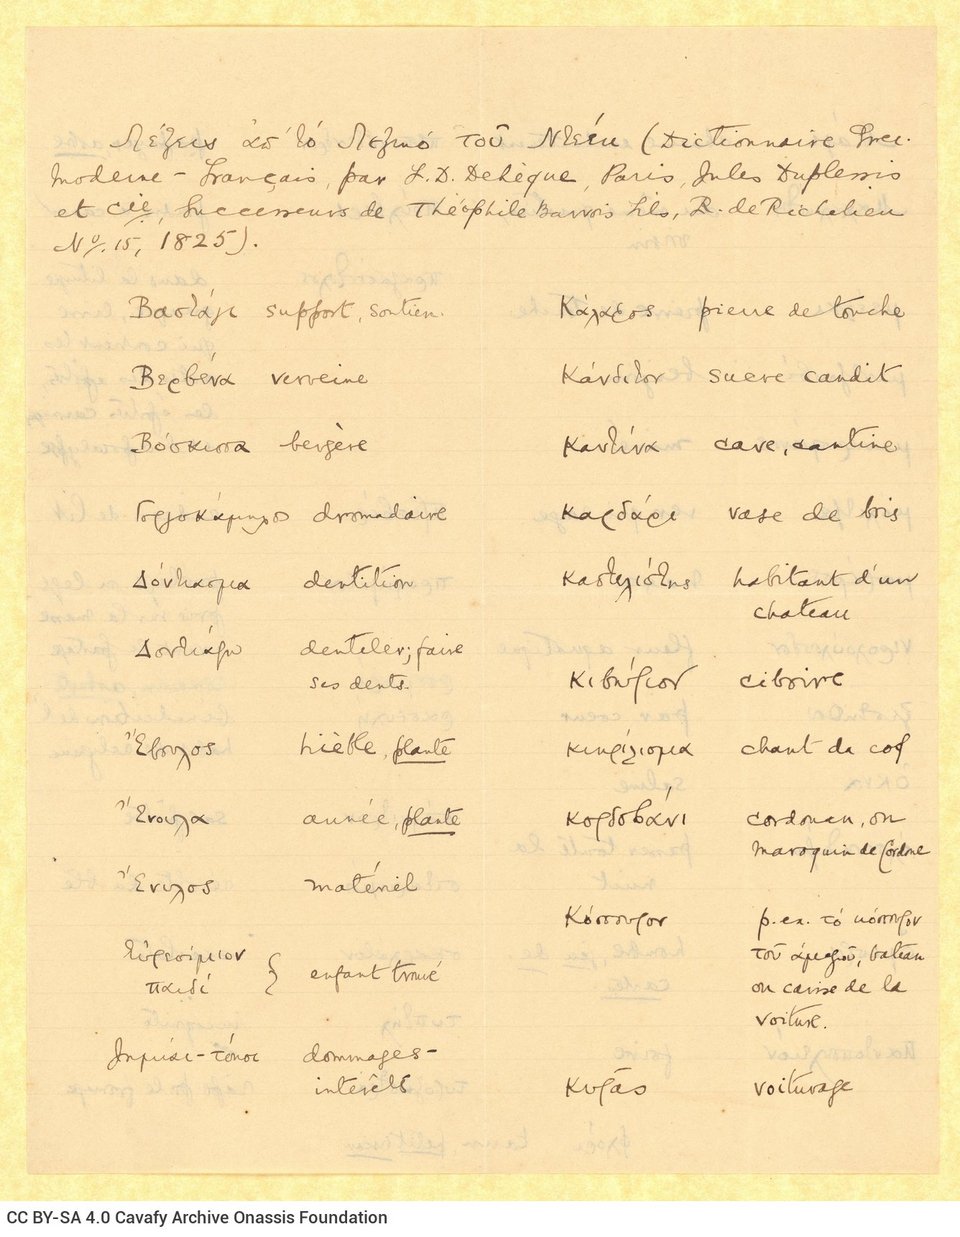 Λέξεις απ' το Λεξικό του Ντεέκ (Dictionnaire Grec
moderne - Français, par F. D. Dehèque, Paris, Jules Duplessis
et Cie, Successeurs de Théophile Barrois fils, R. de Richelieu
No. 15, 1825).
Βαστάγι support, soutien.
Βερβένα verveine
Βόσκισσα bergère
Γοργοκάμηλος dromadaire
Δόντιασμα dentition
Δοντιάζω denteler; faire
ses dents.
Έβουλος hièble, plante
Ένουλα aunée, plante
Ένυλος matériel
Ευρεσίμιον
παιδί } enfant trouvé
Ζημίαι-τόκοι dommages-
intérêts
Κάλαρος pierre de touche
Κάνδιτον sucre candit
Καντίνα cave, cantine
Καρδάρι vase de bois
Καστελιότης habitant d'un
chateau
Κιβώριον ciboire
Κικιρίλισμα chant du coq
Κορδοβάνι cordouan, ou
maroquin de Cordoue
Κόσσυφον p. ex. τό κόσσυφον
τοῦ ἁμαξιοῦ, bateau
ou caisse de la
voiture.
Κυρᾶς voiturage
CC BY-SA 4.0 Cavafy Archive Onassis Foundation